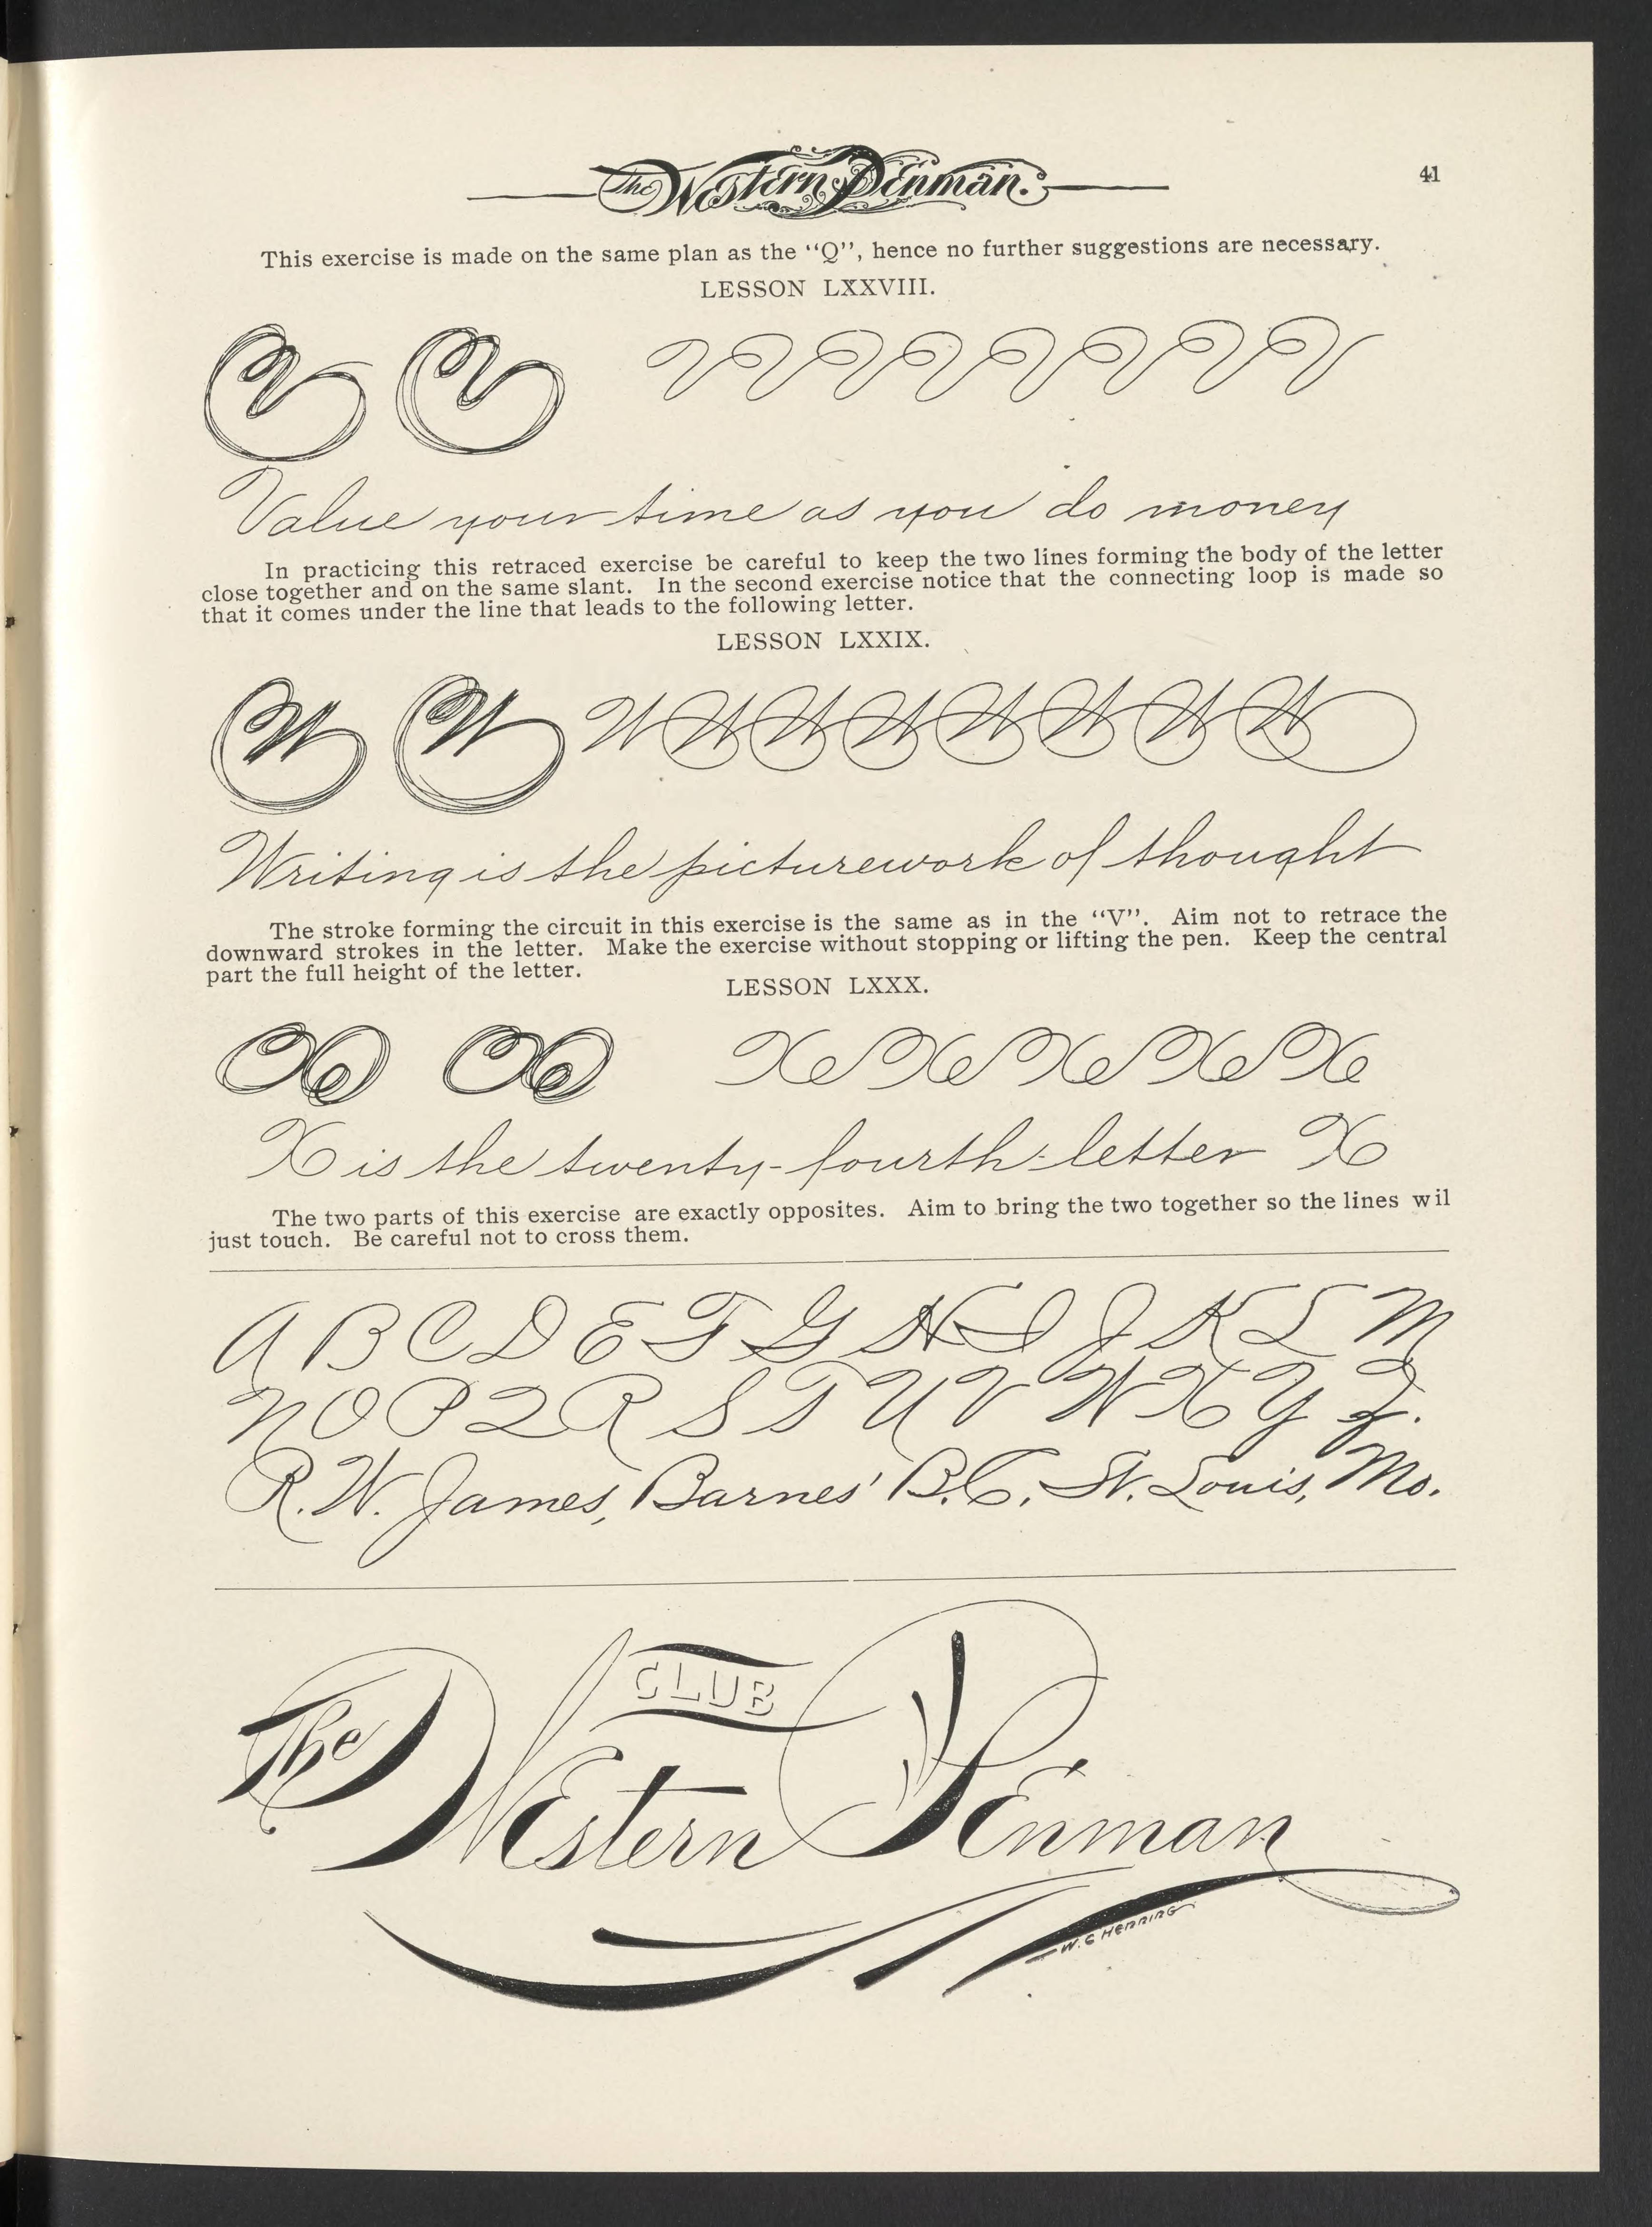 The Western Penman.
41
This exercise is made on the same plan as the "Q", hence no further suggestions are necessary.
LESSON LXXVIII.
Value your time as you do money
In practicing this retraced exercise be careful to keep the two lines forming the body of the letter
close together and on the same slant. In the second exercise notice that the connecting loop is made so
that it comes under the line that leads to the following letter.
LESSON LXXIX.
Writing is the picturework of thought
The stroke forming the circuit in this exercise is the same as in the "V". Aim not to retrace the
downward strokes in the letter. Make the exercise without stopping or lifting the pen. Keep the central
part the full height of the letter.
LESSON LXXX.
X is the twenty-fourth-letter X
The two parts of this exercise are exactly opposites. Aim to bring the two together so the lines wil
just touch. Be careful not to cross them.
A B C D E F G H I J K L M
N O P Q R S T U V W X Y Z.
R. W. James, Barnes' B.C., St. Louis, Mo.
CLUB
The Western Penman
W. C HENNING